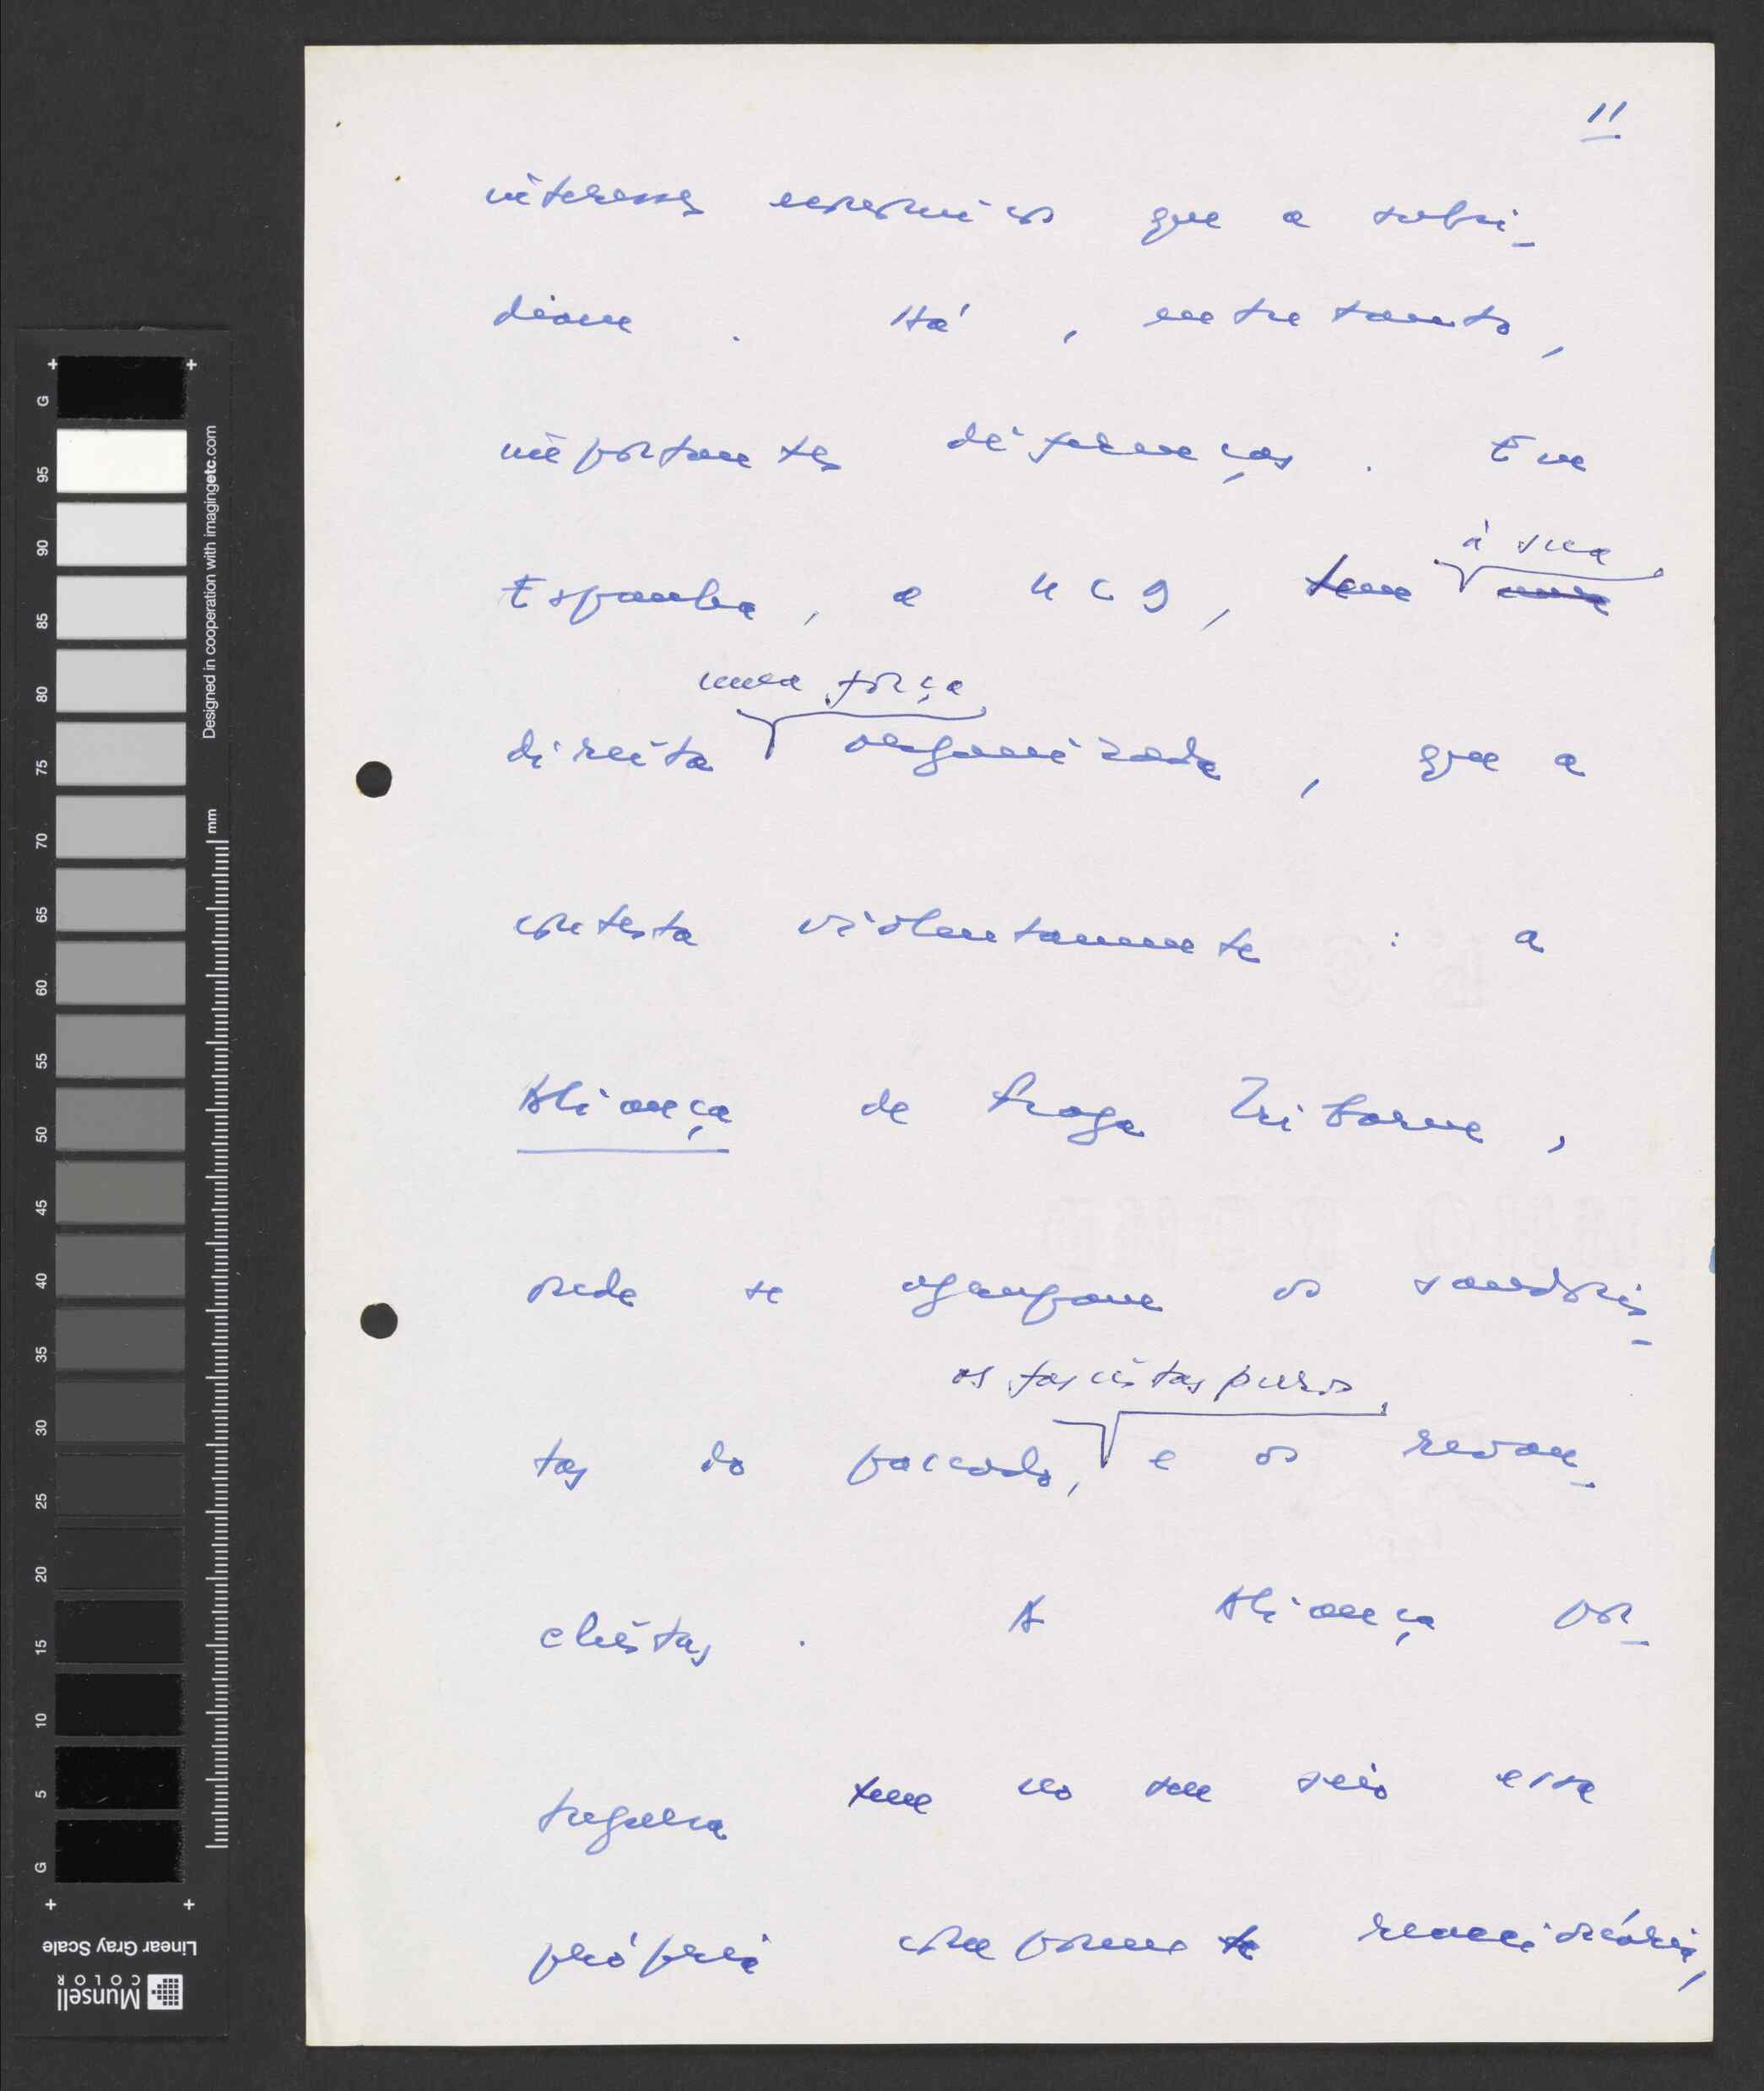 11
interesses económicos que a subsi-
diam. Há, entretanto,
importantes diferenças. Em
à sua
Espanha, a UCD, tem uma
uma força
direita organizada, que a
contesta violentamente: a
Aliança de Fraga Iribarne,
onde se agrupam os saudosis-
os fascistas puros
tas do passado, e os revan-
chistas. A Aliança por-
tuguesa tem no seu seio essa
própria componente reaccionária,
G
95
90
85
80
75
70
65
60
55
50
45
40
35
30
25
20
15
10
5
G
mm
Designed in cooperation with imagingetc.com
Linear Gray Scale
Munsell
COLOR